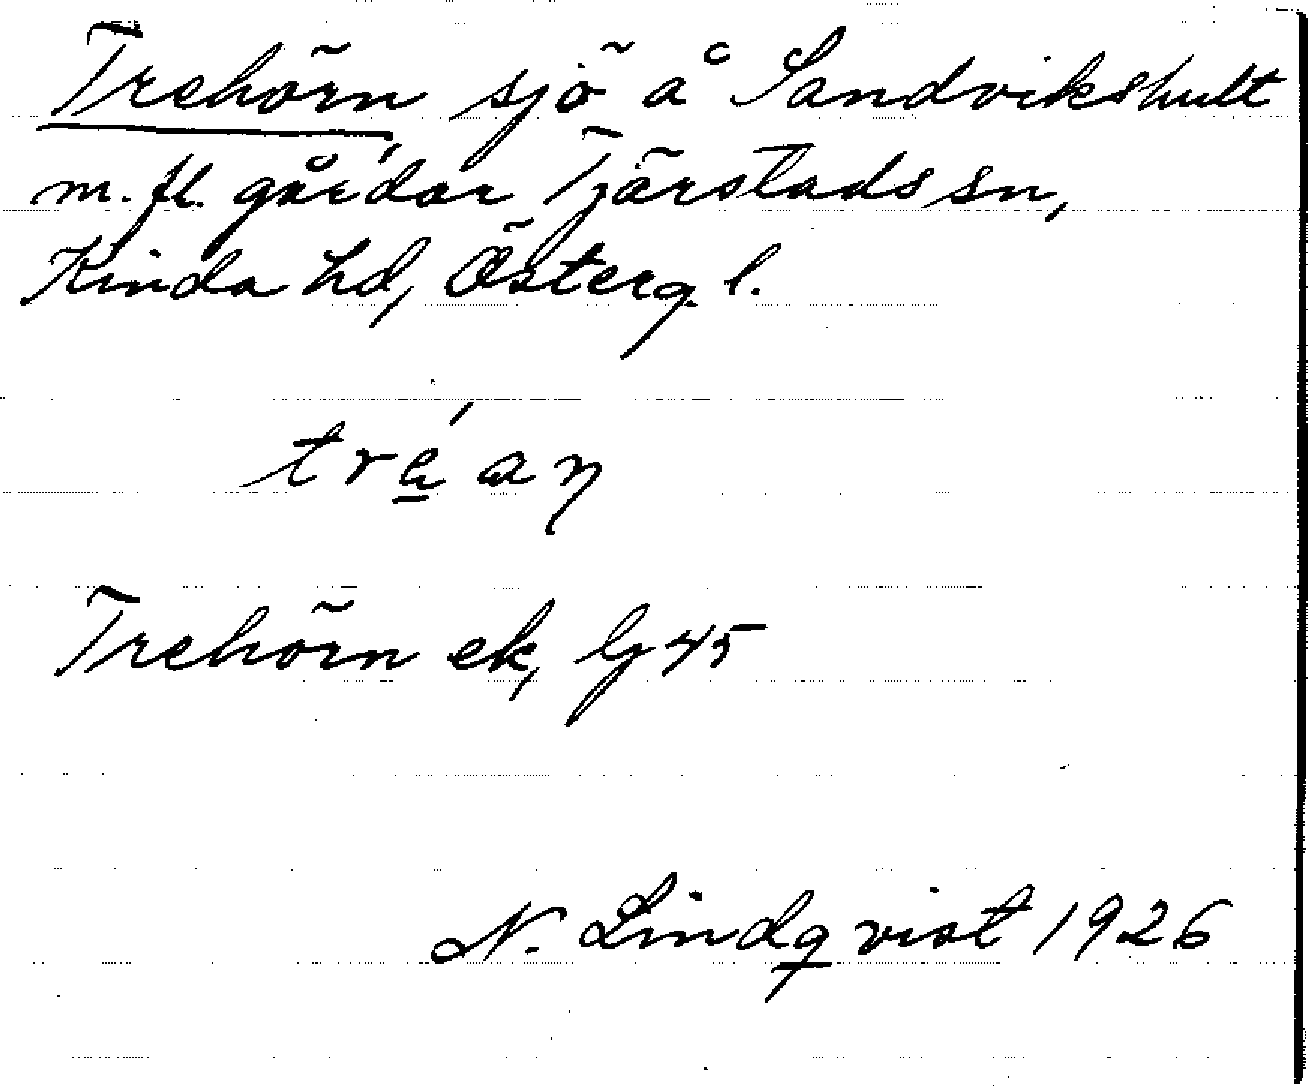 Trehörn, sjö å Sandvikshult
m. fl. gårdar Tjärstads sn,
Kinda hd, Österg. l.
tré̲ aŋ
Trehörn ek, bj 45
N. Lindqvist 1926